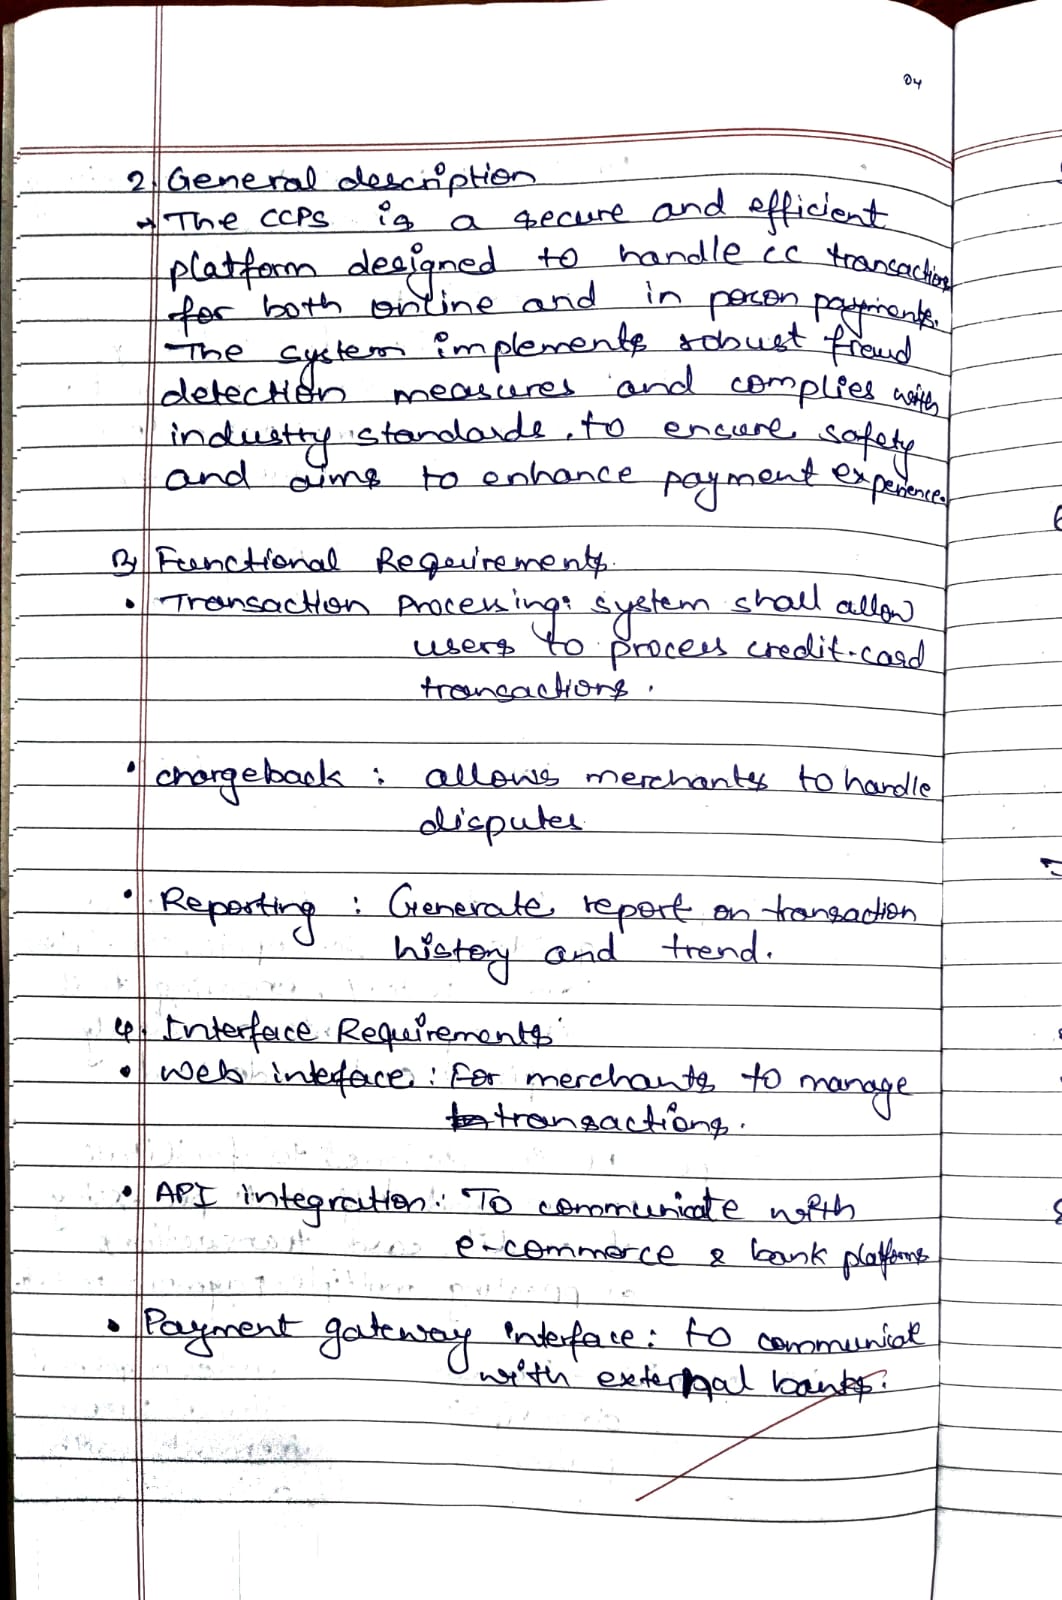 04
2. General description
→ The CCPS is a secure and efficient
platform designed to handle cc transaction
for both online and in person payments.
The system implements robust fraud
detection measures and complies with
industry standards, to ensure safety
and aims to enhance payment experience.
3) Functional Requirements.
• Transaction Processing: system shall allow
users to process credit-card
transactions.
• chargeback : allows merchants to handle
disputes
• Reporting : Generate report on transaction
history and trend.
4. Interface Requirements
• Web interface : For merchants to manage
transactions.
• API integration : To communicate with
e-commerce & bank platforms
• Payment gateway interface : to communicat
with external banks.